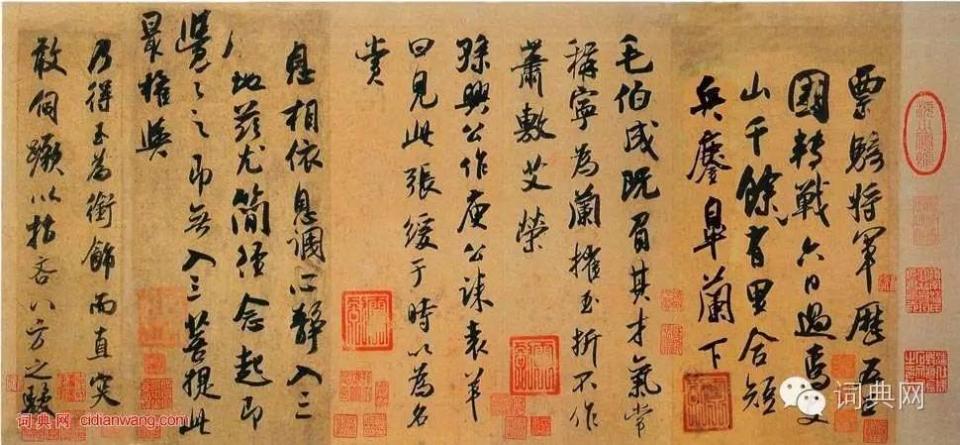 票騎將軍歷五王
國轉戰六日過焉支
山千餘有里合短
兵鏖皋蘭下
毛伯成既負其才氣常
稱寧為蘭摧玉折不作
蕭敷艾榮
孫興公作庾公誄袁羊
曰見此張緩于時以為名
賞
息相依息調心靜入三
地茲尤簡徑念起即
覺覺之即無入三菩提此
最權輿
乃得玉為銜飾而直突
敢伺蹶以指吝八方之
词典网 cidianwang.com
词典网